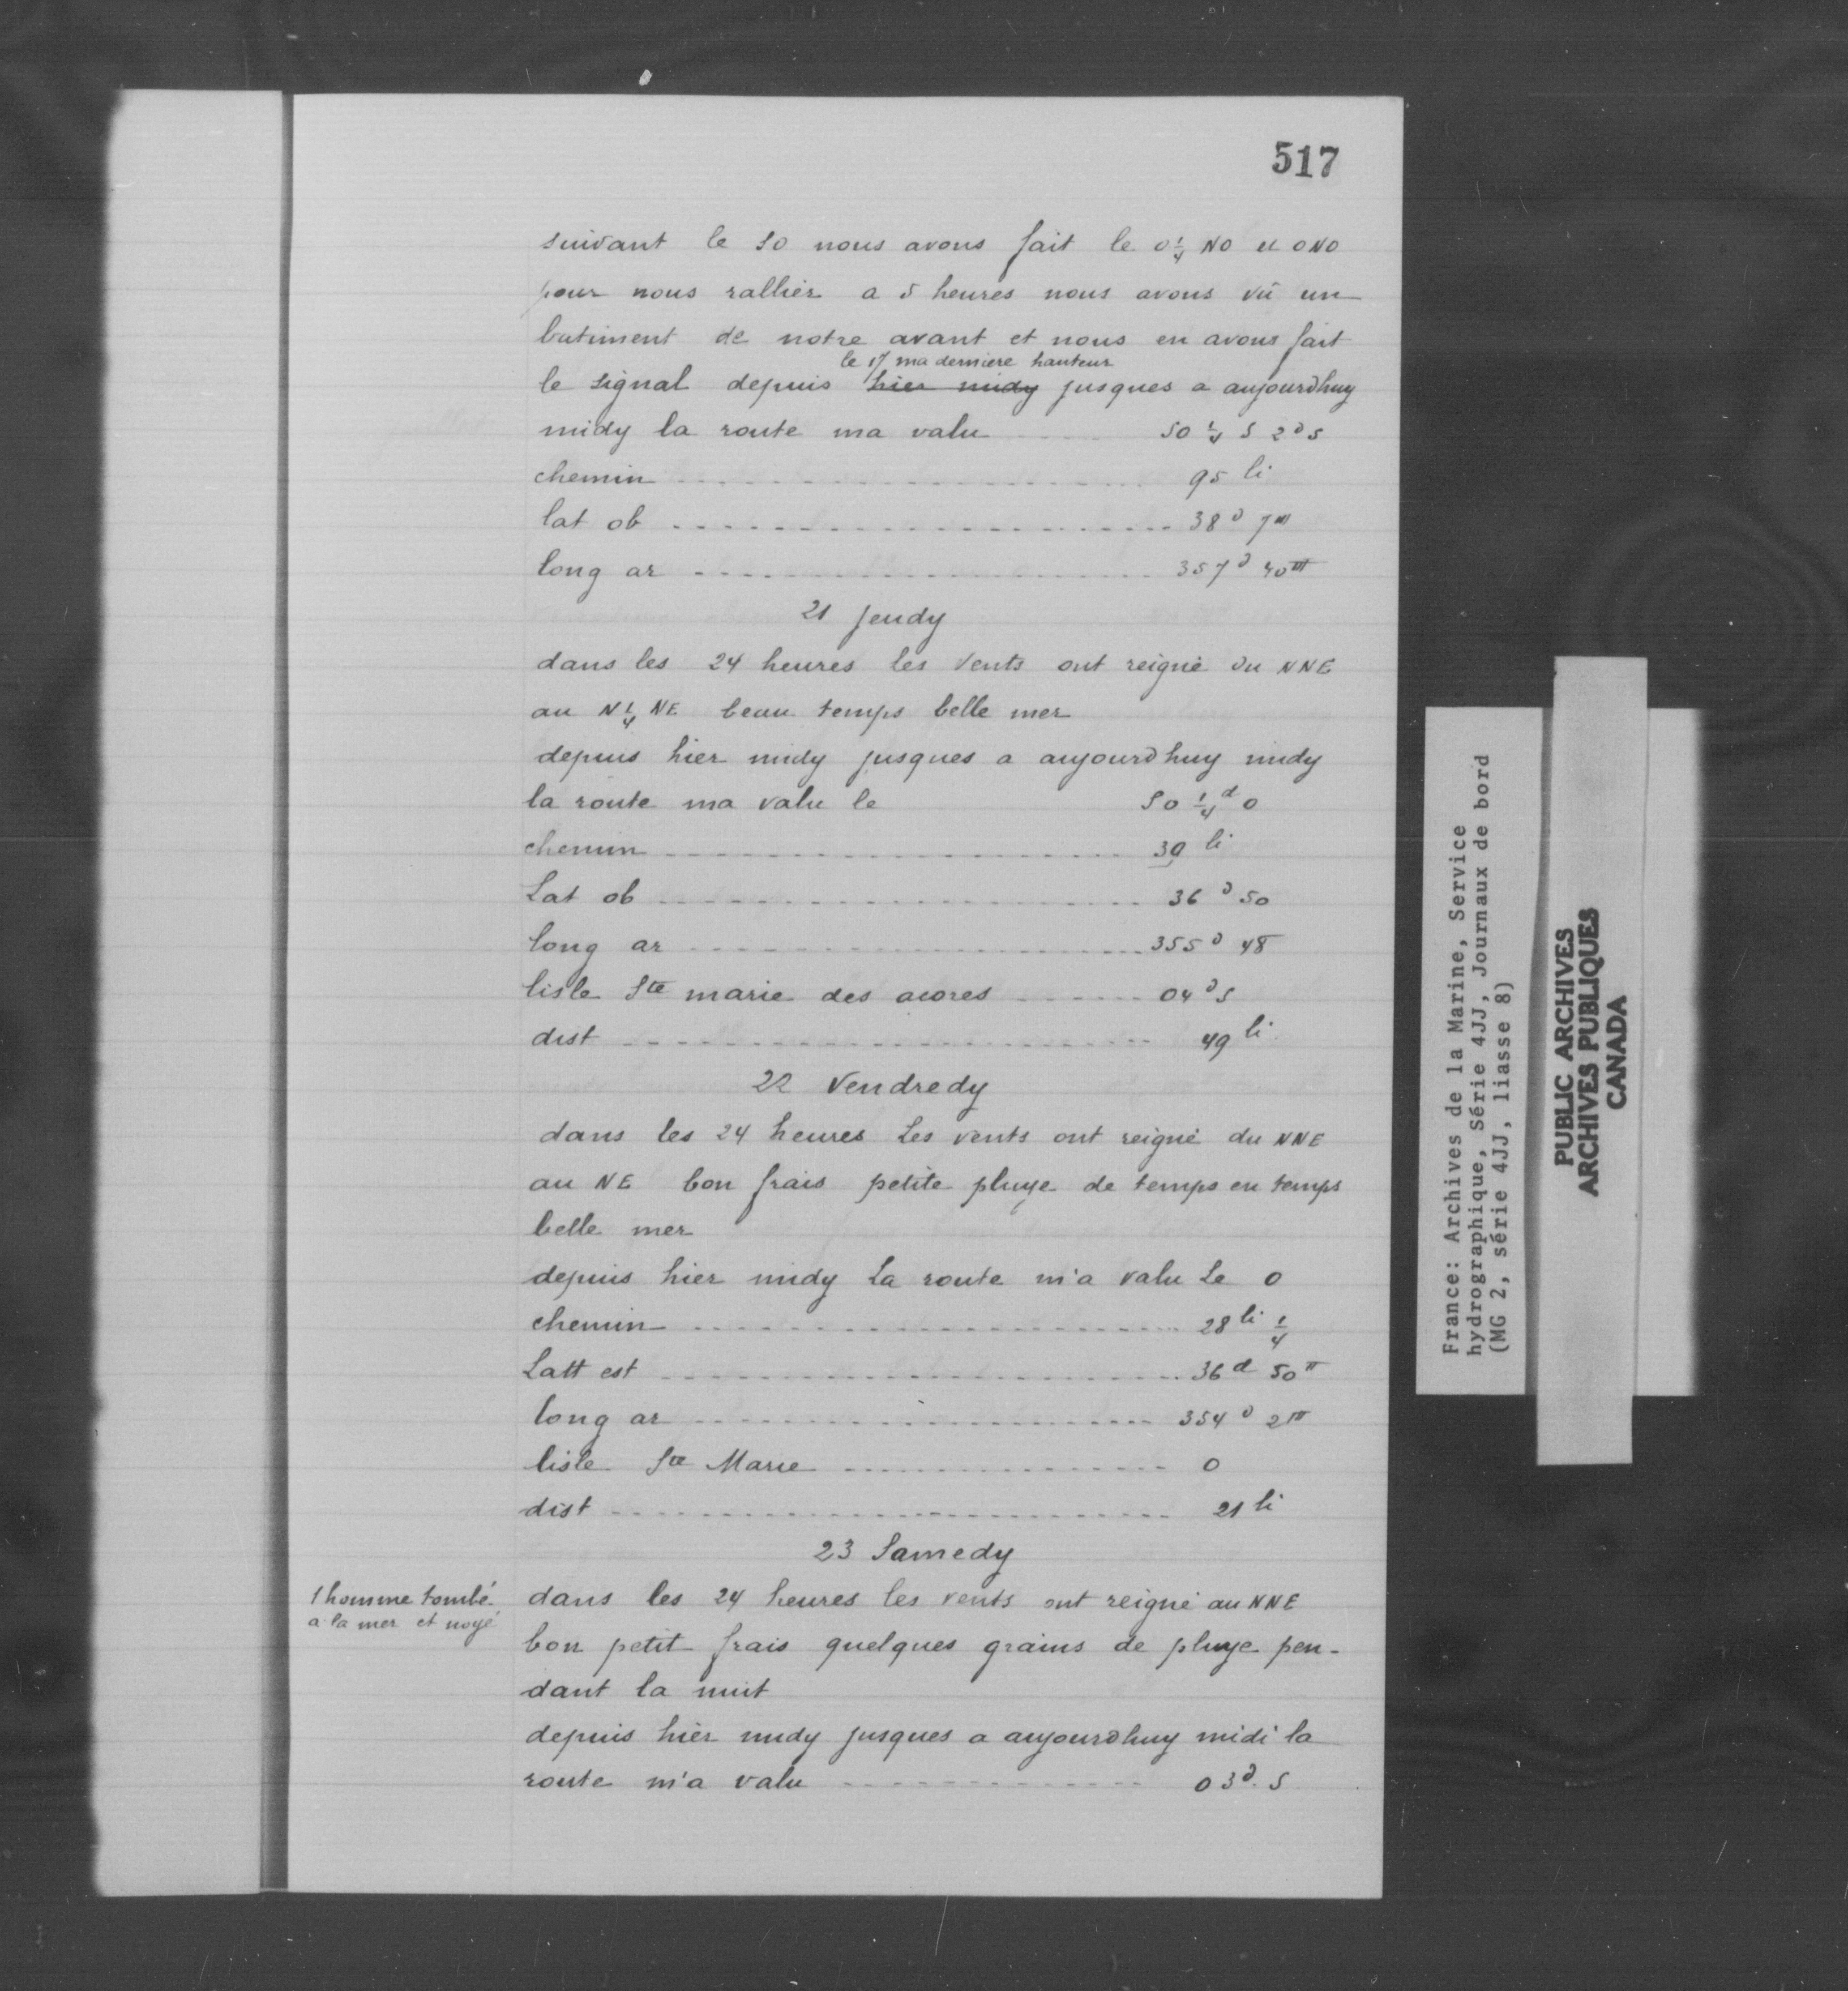 517
suivant le SO nous avons fait le O 1/4 NO et ONO
pour nous rallier a 5 heures nous avons vû un
batiment de notre avant et nous en avons fait
le 17 ma derniere hauteur
le signal depuis hier midy jusques a aujourdhuy
midy la route ma valu SO 1/4 S 2 d S
chemin 95 li
lat ob 38 d 7 m
long ar 357 d 40 m
21 jeudy
dans les 24 heures les vents ont reigné du NNE
au N 1/4 NE beau temps belle mer
depuis hier midy jusques a aujourdhuy midy
la route ma valu le SO 1/4 d O
chemin 39 li
Lat ob 36 d 50
long ar 355 d 48
lisle Ste marie des acores O 4 d S
dist 49 li
22 Vendredy
dans les 24 heures Les vents ont reigné du NNE
au NE bon frais petite pluye de temps en temps
belle mer
depuis hier midy La route m'a valu Le O
chemin 28 li 1/4
Latt est 36 d 50 m
long ar 354 d 2 m
lisle Ste Marie O
dist 21 li
23 Samedy
1 homme tombé
a la mer et noyé
dans les 24 heures les vents ont reigné au NNE
bon petit frais quelques grains de pluye pen-
dant la nuit
depuis hier midy jusques a aujourdhuy midi la
route m'a valu O 3 d. S
France: Archives de la Marine, Service
hydrographique, série 4JJ, Journaux de bord
(MG 2, série 4JJ, liasse 8)
PUBLIC ARCHIVES
ARCHIVES PUBLIQUES
CANADA